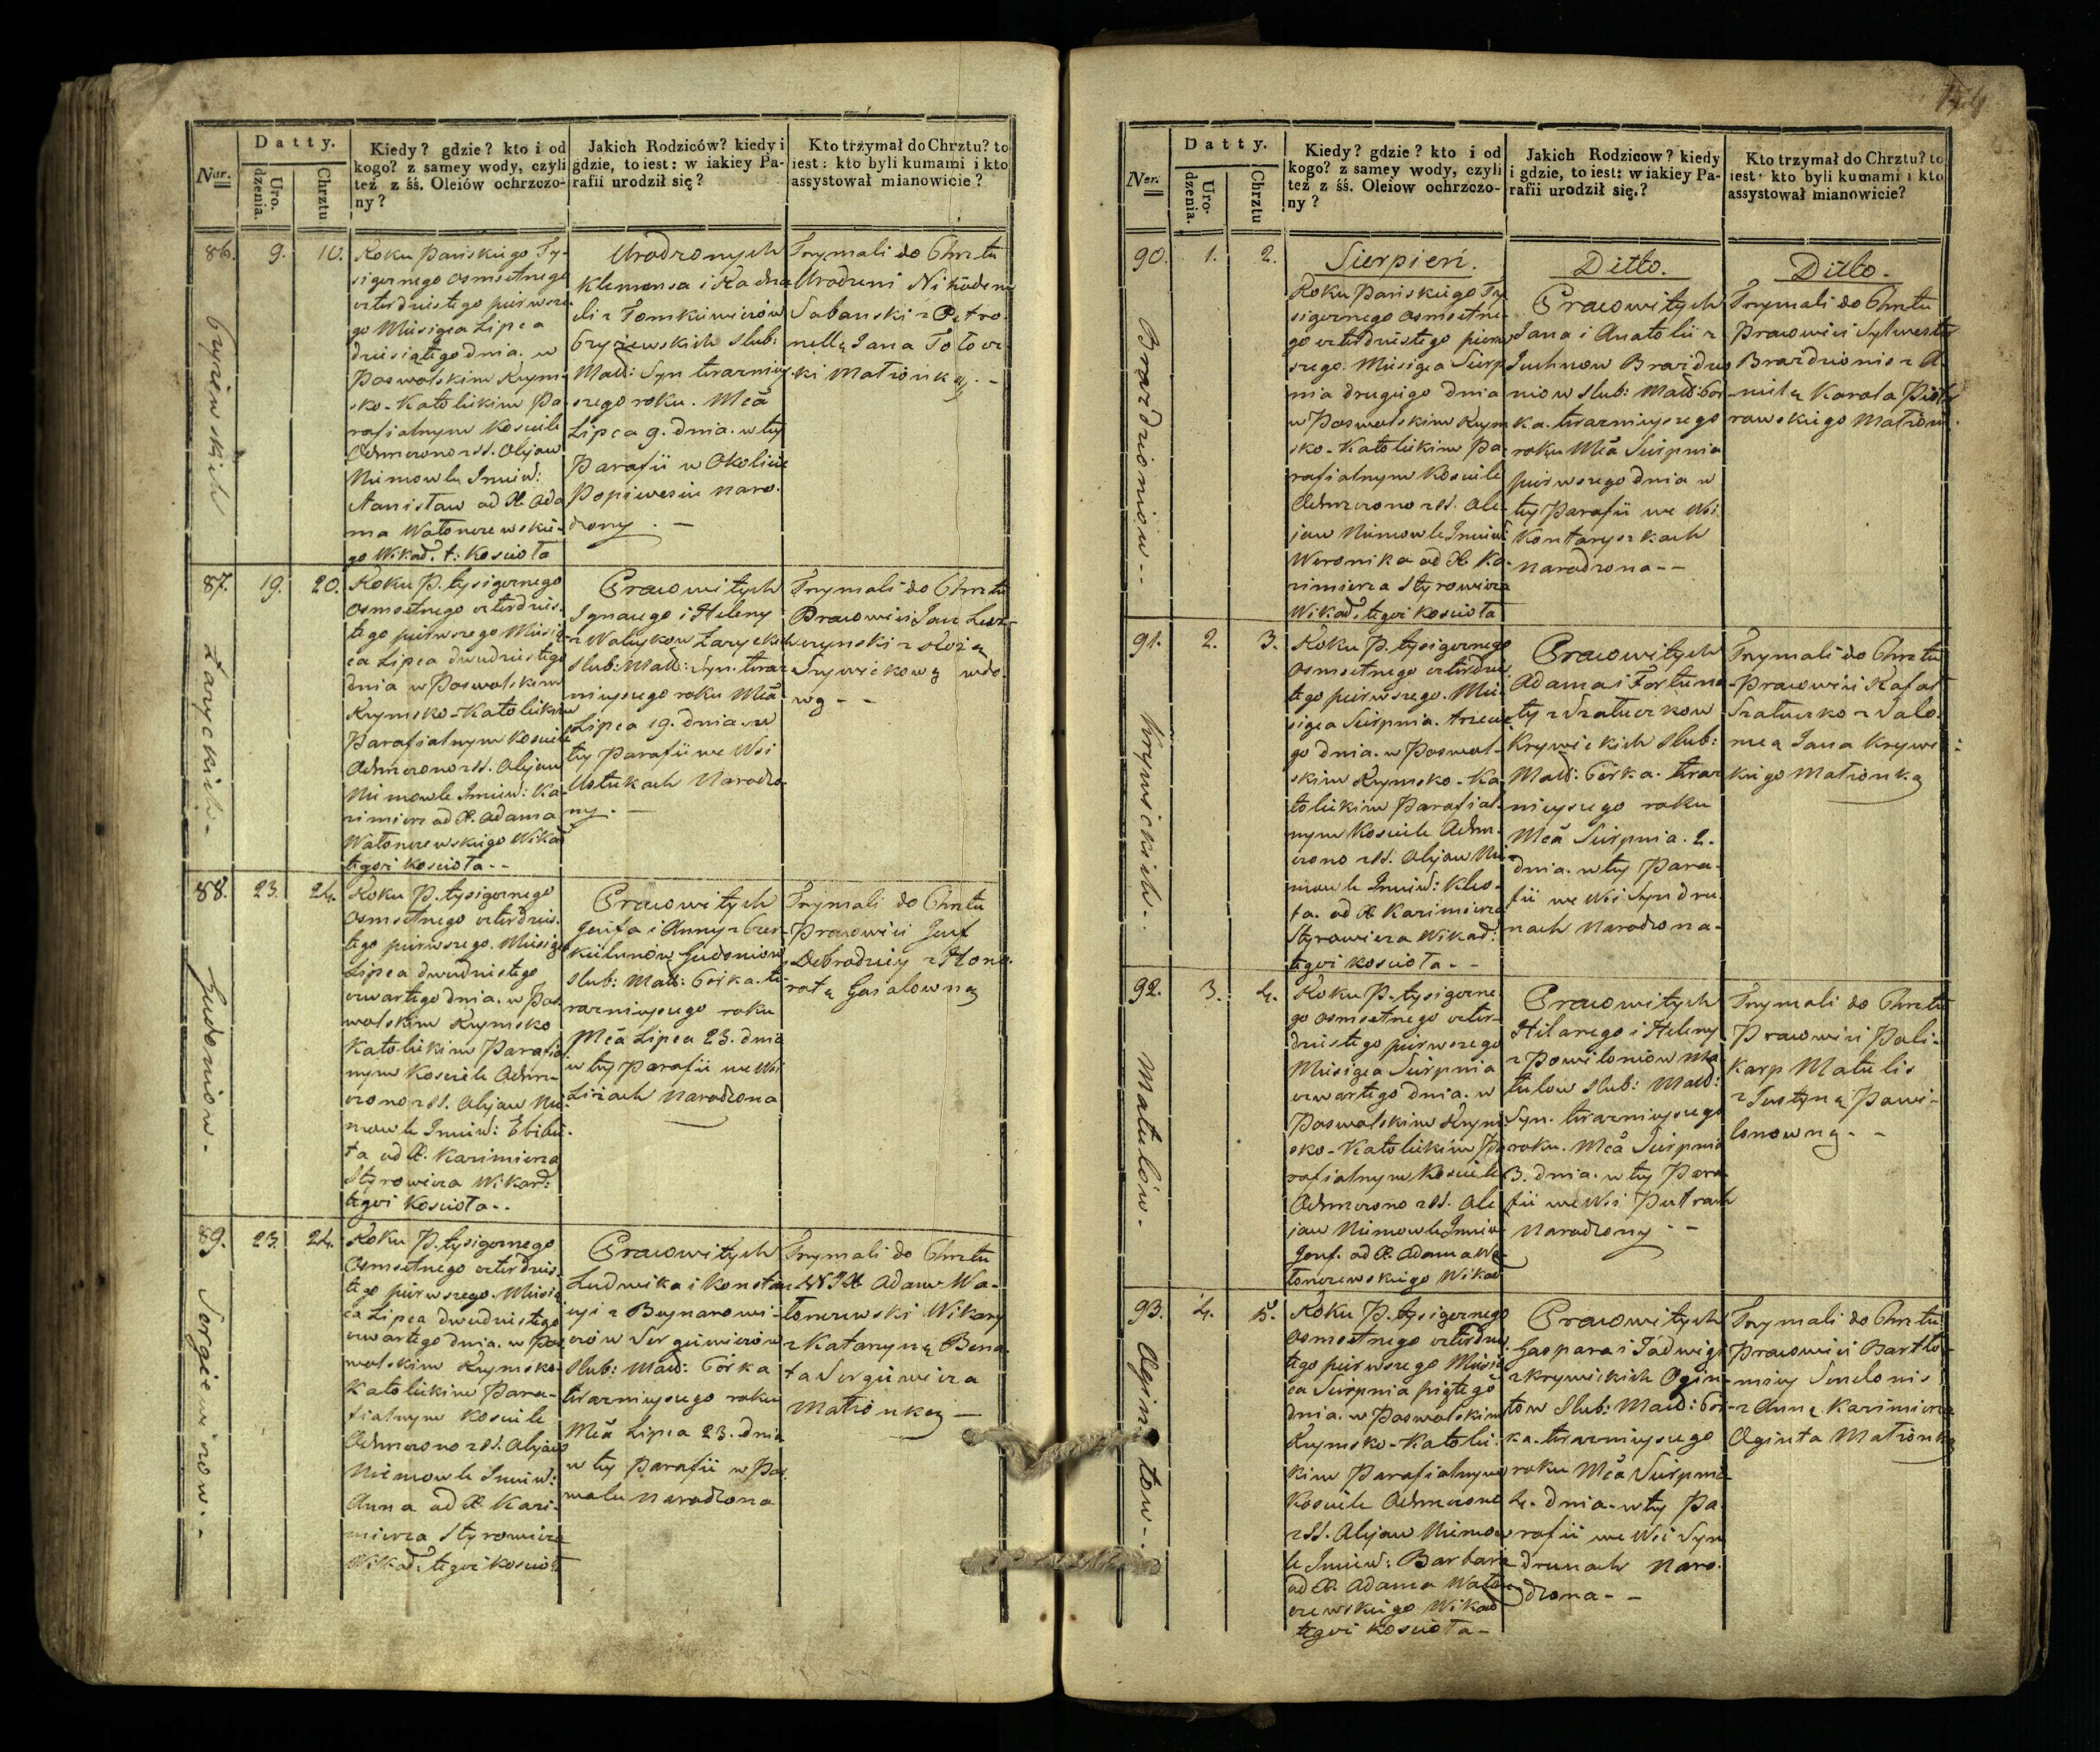 Datty.
Nur.
Uro.
dzenia.
Chrztu
Kiedy? gdzie? kto i od
kogo? z samey wody, czyli
też z śś. Oleiów ochrzczo-
ny?
Jakich Rodziców? kiedy i
gdzie, to iest: w iakiey Pa-
rafii urodził się?
Kto trżymał do Chrztu? to
iest: kto byli kumami i kto
assystował mianowicie?
86.
9.
10.
Roku Pańskiego Ty-
siącznego Osmsetnego
czterdziestego pierwsze
go Miesiąca Lipca
dziesiątego dnia. w
Poswolskim Rzym-
sko-Katolickim Pa-
rafialnym Kosciele
Ochrzczono z SS. Olejow
Niemowle Imiew:
Stanisław od X. Ada
ma Watonczewskie-
go Wikad. t: Kosciola
Urodzonych
Klemensa i
z Tomkiewiczów
Slub:
Małż: Syn teraznieÿ
szego roku. Mcă
Lipca 9. dnia. w teÿ
Parafii w Okolicie
Popiwesiu naro-
dzony. -
Trzymali do Chrztu
Urodzeni Nikodem
Sabanski z Petro-
nellą Jana Totocz
ki Małżonką. -
87.
Zaryckich -
19.
20.
Roku P. tysiącznego
Osmsetnego czterdzies-
tego pierwszego Miesią-
ca Lipca dwudziestego
dnia w Poswolskim
Rzymsko-Katolickim
Parafialnym Kosciele
Ochrzczono z SS. Olejow
Niemowle Imiew: Ka-
zimierz od X. Adama
Watonczewskiego Wikad
tegoż Kosciola - -
Pracowitych
Ignacego i Heleny
z Zaryckich
Slub: Małż: Syn. teraz
nieyszego roku Mcă
Lipca 19. dnia. w
teÿ Parafii we Wsi
Narodzo-
ny. -
Trzymali do Chrztu
Pracowici Jan
z Rożą
wdo-
wą - -
88.
Gudoniow -
23.
24.
Roku P. tysiącznego
Osmsetnego czterdzies-
tego pierwszego. Miesiąca
Lipca dwudziestego
czwartego dnia. w Pos
wolskim Rzymsko
Katolickim Parafial
nym Kosciele Ochrz-
czono z SS. Olejow Nie-
mowle Imiew:
ta od X. Kazimierza
Styrowicza Wikad:
tegoż Kosciola - -
Pracowitych
Jozefa i Anny z
Gudoniow
Slub: Małż: Corka. te
raznieyszego roku
Mcă Lipca 23. dnia
w teÿ Parafii we Wsi
Narodzona
Trzymali do Chrztu
Pracowici Jozef
z Hono-
ratą
89.
Sergiewiczow. -
23.
24.
Roku P. tysiącznego
Osmsetnego czterdzies-
tego pierwszego. Miesią
ca Lipca dwudziestego
czwartego dnia. w Pos
wolskim Rzymsko-
Katolickim Para-
fialnym Kosciele
Ochrzczono z SS. Olejow
Niemowle Imiew:
Anna od X. Kazi-
mierza Styrowicza
Wikad. tegoż Kosciol
Pracowitych
Ludwika i Konstan
cyi z Boynarowi-
czów Sergiewiczów
Slub: Małż: Corka
teraznieyszego roku
Mcă Lipca 23. dnia
w teÿ Parafii w Pos-
wolu narodzona
Trzymali do Chrztu
X Adam Wa-
tonczewski Wikary
z Katarzyną Bene-
ta Sergiewicza
Małżonką -
Datty.
Ner.
Uro-
dzenia.
Chrztu
Kiedy? gdzie? kto i od
kogo? z samey wody, czyli
też z śś. Oleiow ochrzczo-
ny?
Jakich Rodzicow? kiedy
i gdzie, to iest: w iakiey Pa-
rafii urodził się.?
Kto trzymał do Chrztu? to
iest: kto byli kumami i kto
assystował mianowicie?
90.
Brazdzioniow - -
1.
2.
Sierpień.
Roku Pańskiego Ty
siącznego Osmsetne-
go czterdziestego pierw
szego. Miesiąca Sierp
nia drugiego dnia
w Poswolskim Rzym
sko-Katolickim Pa-
rafialnym Kosciele
Ochrzczono z SS. Ole-
jow Niemowle Imiew
Weronika od X. Ka-
zimierza Styrowicza
Wikad. tegoż Kosciola
Ditto.
Pracowitych
Jana i Anatolii z
Brazdzio
niow Slub: Małż: Cor
ka. teraznieyszego
roku Mcă Sierpnia
pierwszego dnia w
teÿ Parafii we Wsi
Narodzona - -
Ditto.
Trzymali do Chrztu
Pracowici Sylwester
Brazdzionis z A-
nielą Karola Piotr
rowskiego Małżonk.
91.
Krywickich -
2.
3.
Roku P. tysiącznego
Osmsetnego czterdzies
tego pierwszego. Mie-
siąca Sierpnia. trzecie
go dnia. w Poswol-
skim Rzymsko-Ka-
tolickim Parafial-
nym Kosciele Ochrz-
czono z SS. Olejow Nie
mowle Imiew: Kleo-
fa. od X Kazimierza
Styrowicza Wikad:
tegoż Kosciola - -
Pracowitych
Adama i Fortuna-
ty z Szatuczkow
Krywickich Slub:
Małż: Corka. teraz
nieyszego roku
Mcă Sierpnia. 2.
dnia. w teÿ Para-
fii we Wsi Syndru
nach Narodzona -
Trzymali do Chrztu
Pracowici Rafał
Szatuczko z Salo-
meą Jana Krywic-
kiego Małżonką
92.
Matulów -
3.
4.
Roku P. tysiączne-
go Osmsetnego czter-
dziestego pierwszego
Miesiąca Sierpnia
czwartego dnia. w
Poswolskim Rzym
sko-Katolickim Pa
rafialnym Kosciele
Ochrzczono z SS. Ole
jow Niemowle Imiew
Jozef. od X. Adama Wa-
tonczewskiego Wikad
Pracowitych
Hilarego i Heleny
z Powiloniow Ma
tulow Slub: Małż:
Syn. teraznieyszego
roku. Mcă Sierpnia
3. dnia. w teÿ Para
fii we Wsi Putrach
Narodzony - -
Trzymali do Chrztu
Pracowici Poli-
karp Matulis
z Justyną Powi-
lonowną - -
93.
Ogintow -
4.
5.
Roku P. tysiącznego
Osmsetnego czterdzies
tego pierwszego Miesią
ca Sierpnia piątego
dnia. w Poswolskim
Rzymsko-Katolic-
kim Parafialnym
Kosciele Ochrzczono
z SS. Olejow Niemow
le Imiew: Barbara
od X. Adama Waton
czewskiego Wikad
tegoż Kosciola -
Pracowitych
Gaspara i Jadwigi
z Krywickich Ogin-
tow Slub: Małż: Cor-
ka. teraznieyszego
roku Mcă Sierpnia
4. dnia. w teÿ Pa-
rafii we Wsi Syn
drunach Naro-
dzona - -
Trzymali do Chrztu
Pracowici Bartło-
miey
z Anną Kazimierza
Oginta Małżonką